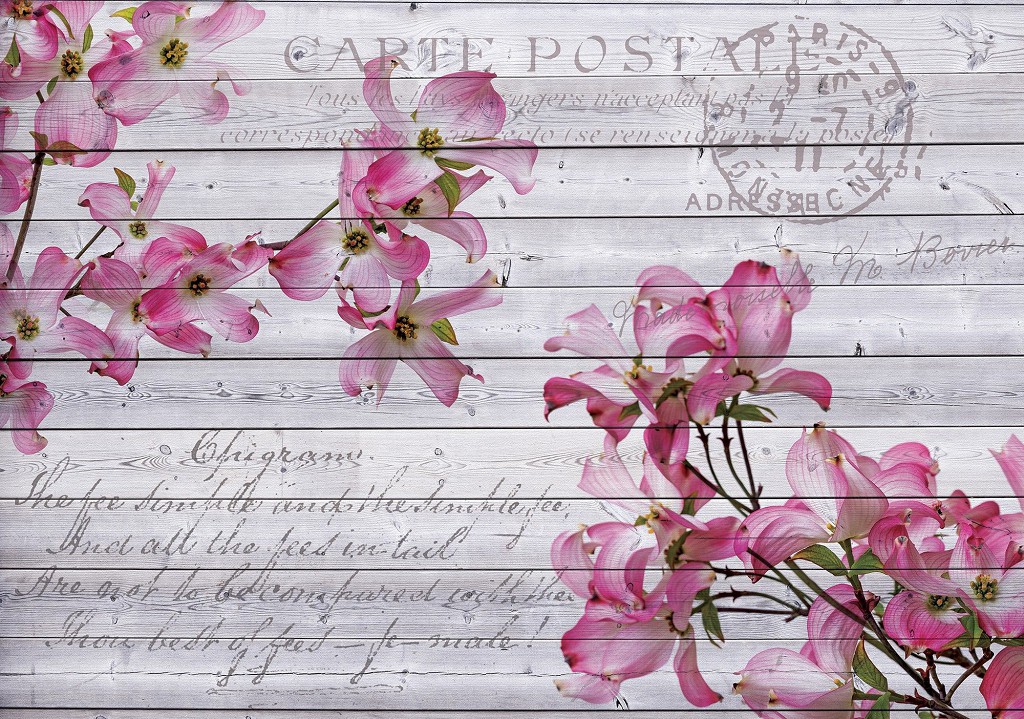 CARTE POSTALE
Tous les Pays étrangers n'acceptent pas la
correspondance au recto (se renseigner à la poste)
PARIS
ADRESSE
Mademoiselle M Bovier
Epigram.
The fee simple and the simple fee,
And all the fees in tail
Are not to be compared with thee
Thou best of fees – fe-male!